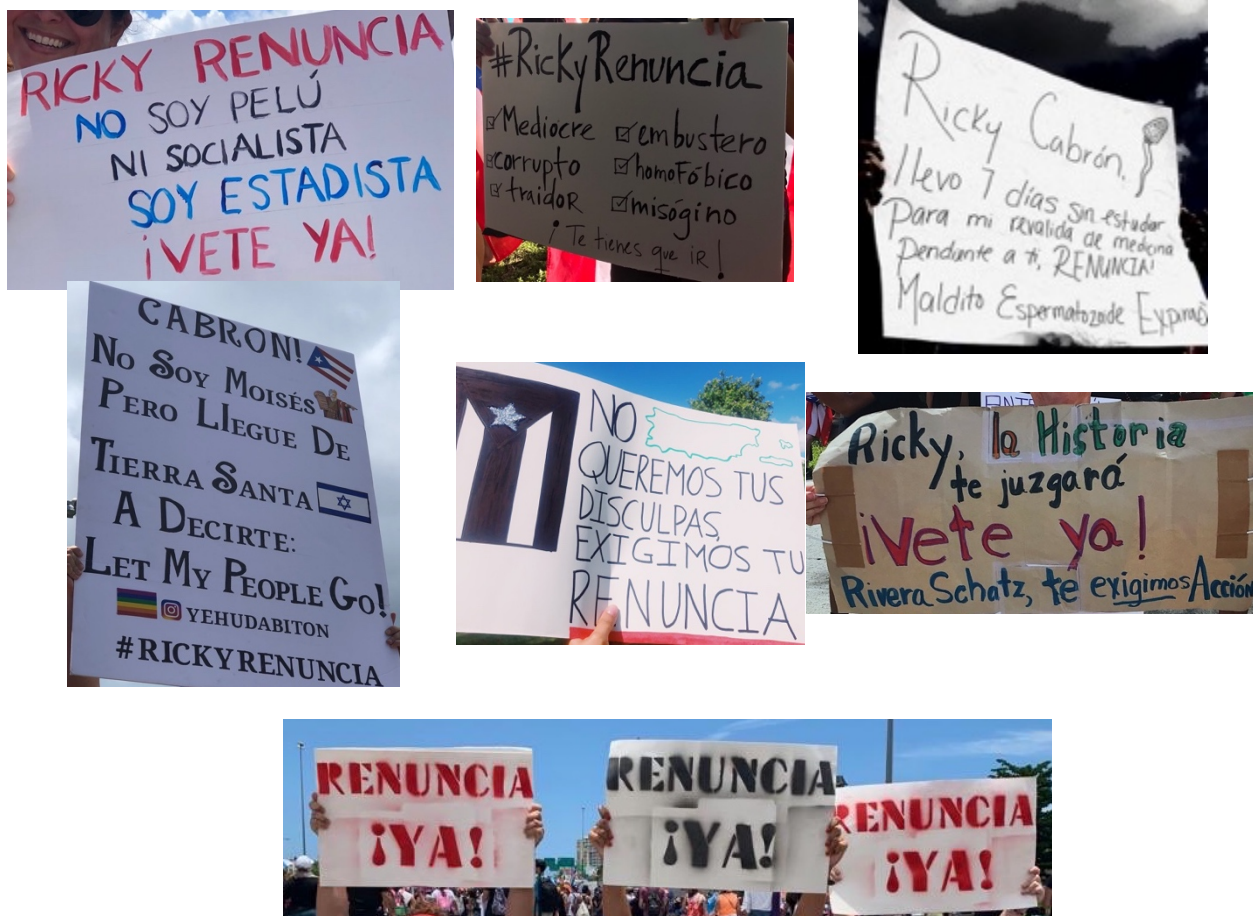 RICKY RENUNCIA
NO SOY PELÚ
NI SOCIALISTA
SOY ESTADISTA
¡VETE YA!
#RickyRenuncia
Mediocre embustero
corrupto homoFóbico
traidoR misógino
¡Te tienes que iR!
Ricky Cabrón,
llevo 7 días sin estudar
para mi revalida de medicina
pendante a ti, RENUNCIA!
Maldito Espermatozoide
CABRON!
NO SOY MOISÉS
PERO LLEGUE DE
TIERRA SANTA
A DECIRTE:
LET MY PEOPLE GO!
YEHUDABITON
#RICKYRENUNCIA
NO
QUEREMOS TUS
DISCULPAS,
EXIGIMOS TU
RENUNCIA
Ricky, la Historia
te juzgará
¡Vete ya!
Rivera Schatz, te exigimos Acción
RENUNCIA
¡YA!
RENUNCIA
¡YA!
RENUNCIA
¡YA!